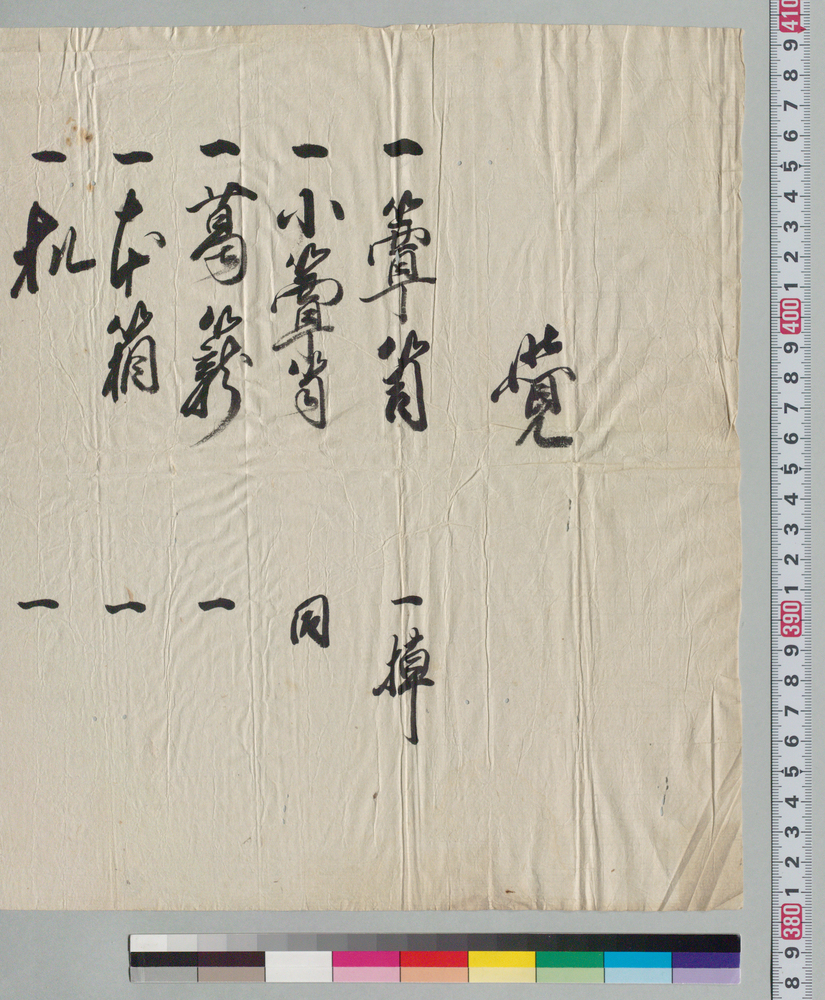 覚
一簞笥 一掉
一小簞笥 同
一葛籠 一
一本箱 一
一机 一
410
9
8
7
6
5
4
3
2
1
400
9
8
7
6
5
4
3
2
1
390
9
8
7
6
5
4
3
2
1
380
9
8